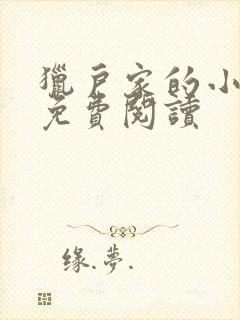 獵戶家的小
免費閱讀
缘.梦.